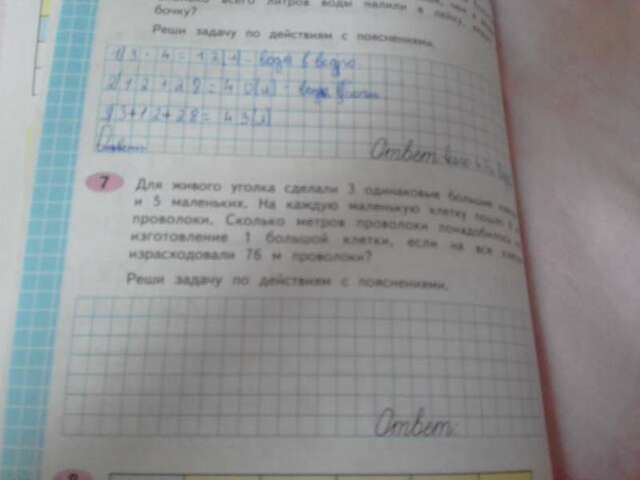 всего литров воды налили в лейку,
бочку?
Реши задачу по действиям с пояснениями.
1) 3 · 4 = 12(л) - вода в ведро.
2) 12 + 28 = 40(л) -
3) 3+12+28 = 43(л)
Ответ:
7 Для живого уголка сделали 3 одинаковые большие
и 5 маленьких. На каждую маленькую клетку пошло
проволоки. Сколько метров проволоки понадобилось
изготовление 1 большой клетки, если на все
израсходовали 76 м проволоки?
Реши задачу по действиям с пояснениями.
Ответ: